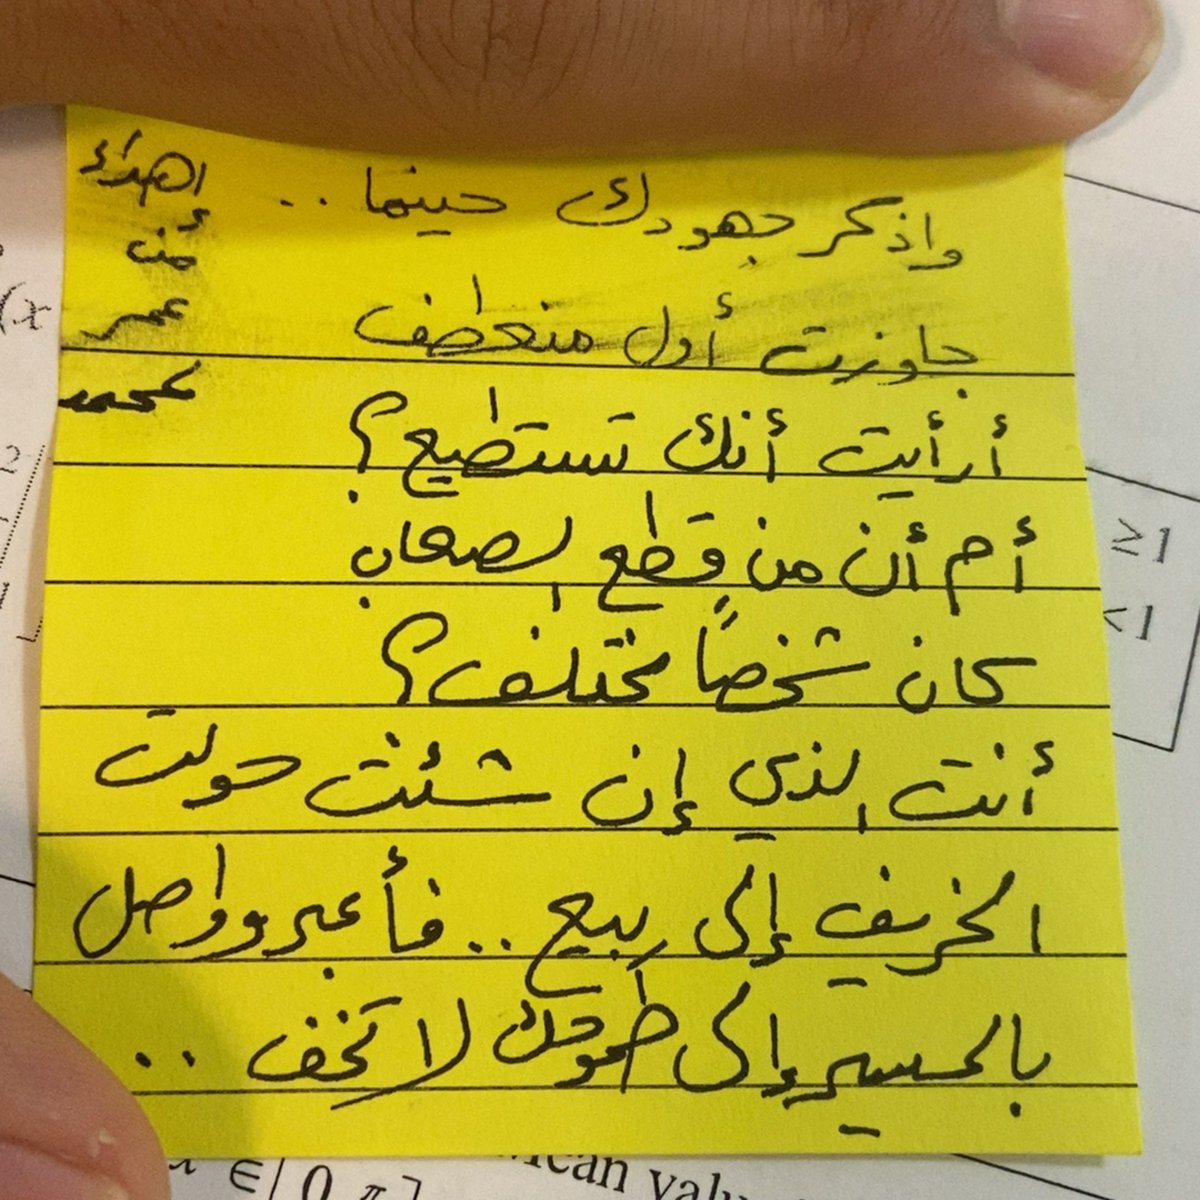 واذكر جهودك حينما ..
جاوزت أول منعطف
أرأيت أنك تستطيع؟
أم أن من قطع الصعاب
كان شخصاً مختلف؟
أنت الذي إن شئت حولت
الخريف إلى ربيع .. فأعبر وواصل
بالمسير إلى طموحك لا تخف ..
اهداء
من
عمر
محمد
(x
2
≥1
<1
x ∈[0, π]
Mean valu